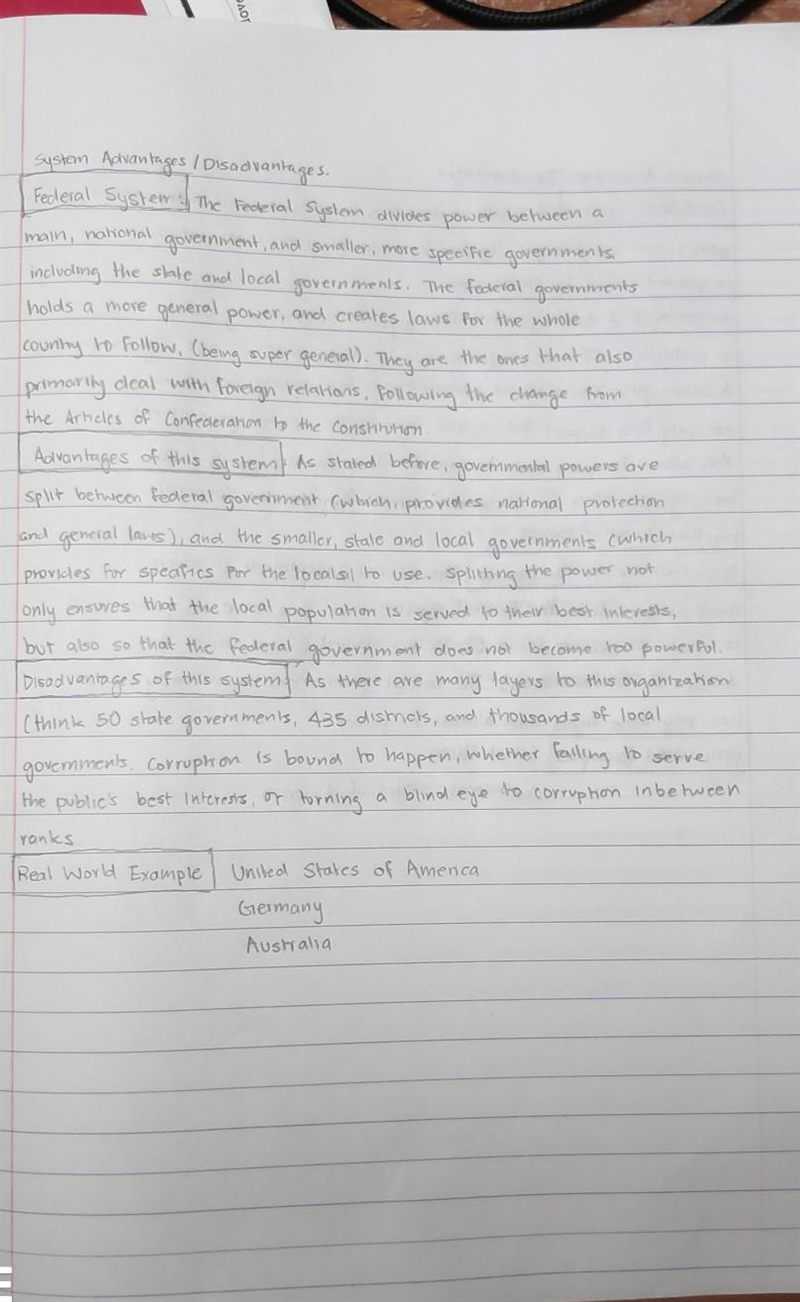 System Advantages / Disadvantages.
Federal System: The Federal System divides power between a
main, national government, and smaller, more specific governments
including the state and local governments. The federal governments
holds a more general power, and creates laws for the whole
country to follow, (being super general). They are the ones that also
primarily deal with foreign relations, following the change from
the Articles of Confederation to the Constitution
Advantages of this system: As stated before, governmental powers are
split between federal government (which, provides national protection
and general laws), and the smaller, state and local governments (which
provides for specifics for the locals) to use. Splitting the power not
only ensures that the local population is served to their best interests,
but also so that the federal government does not become too powerful.
Disadvantages of this system: As there are many layers to this organization
(think 50 state governments, 435 districts, and thousands of local
governments. Corruption is bound to happen, whether failing to serve
the public's best interests, or turning a blind eye to corruption inbetween
ranks
Real World Example United States of America
Germany
Australia